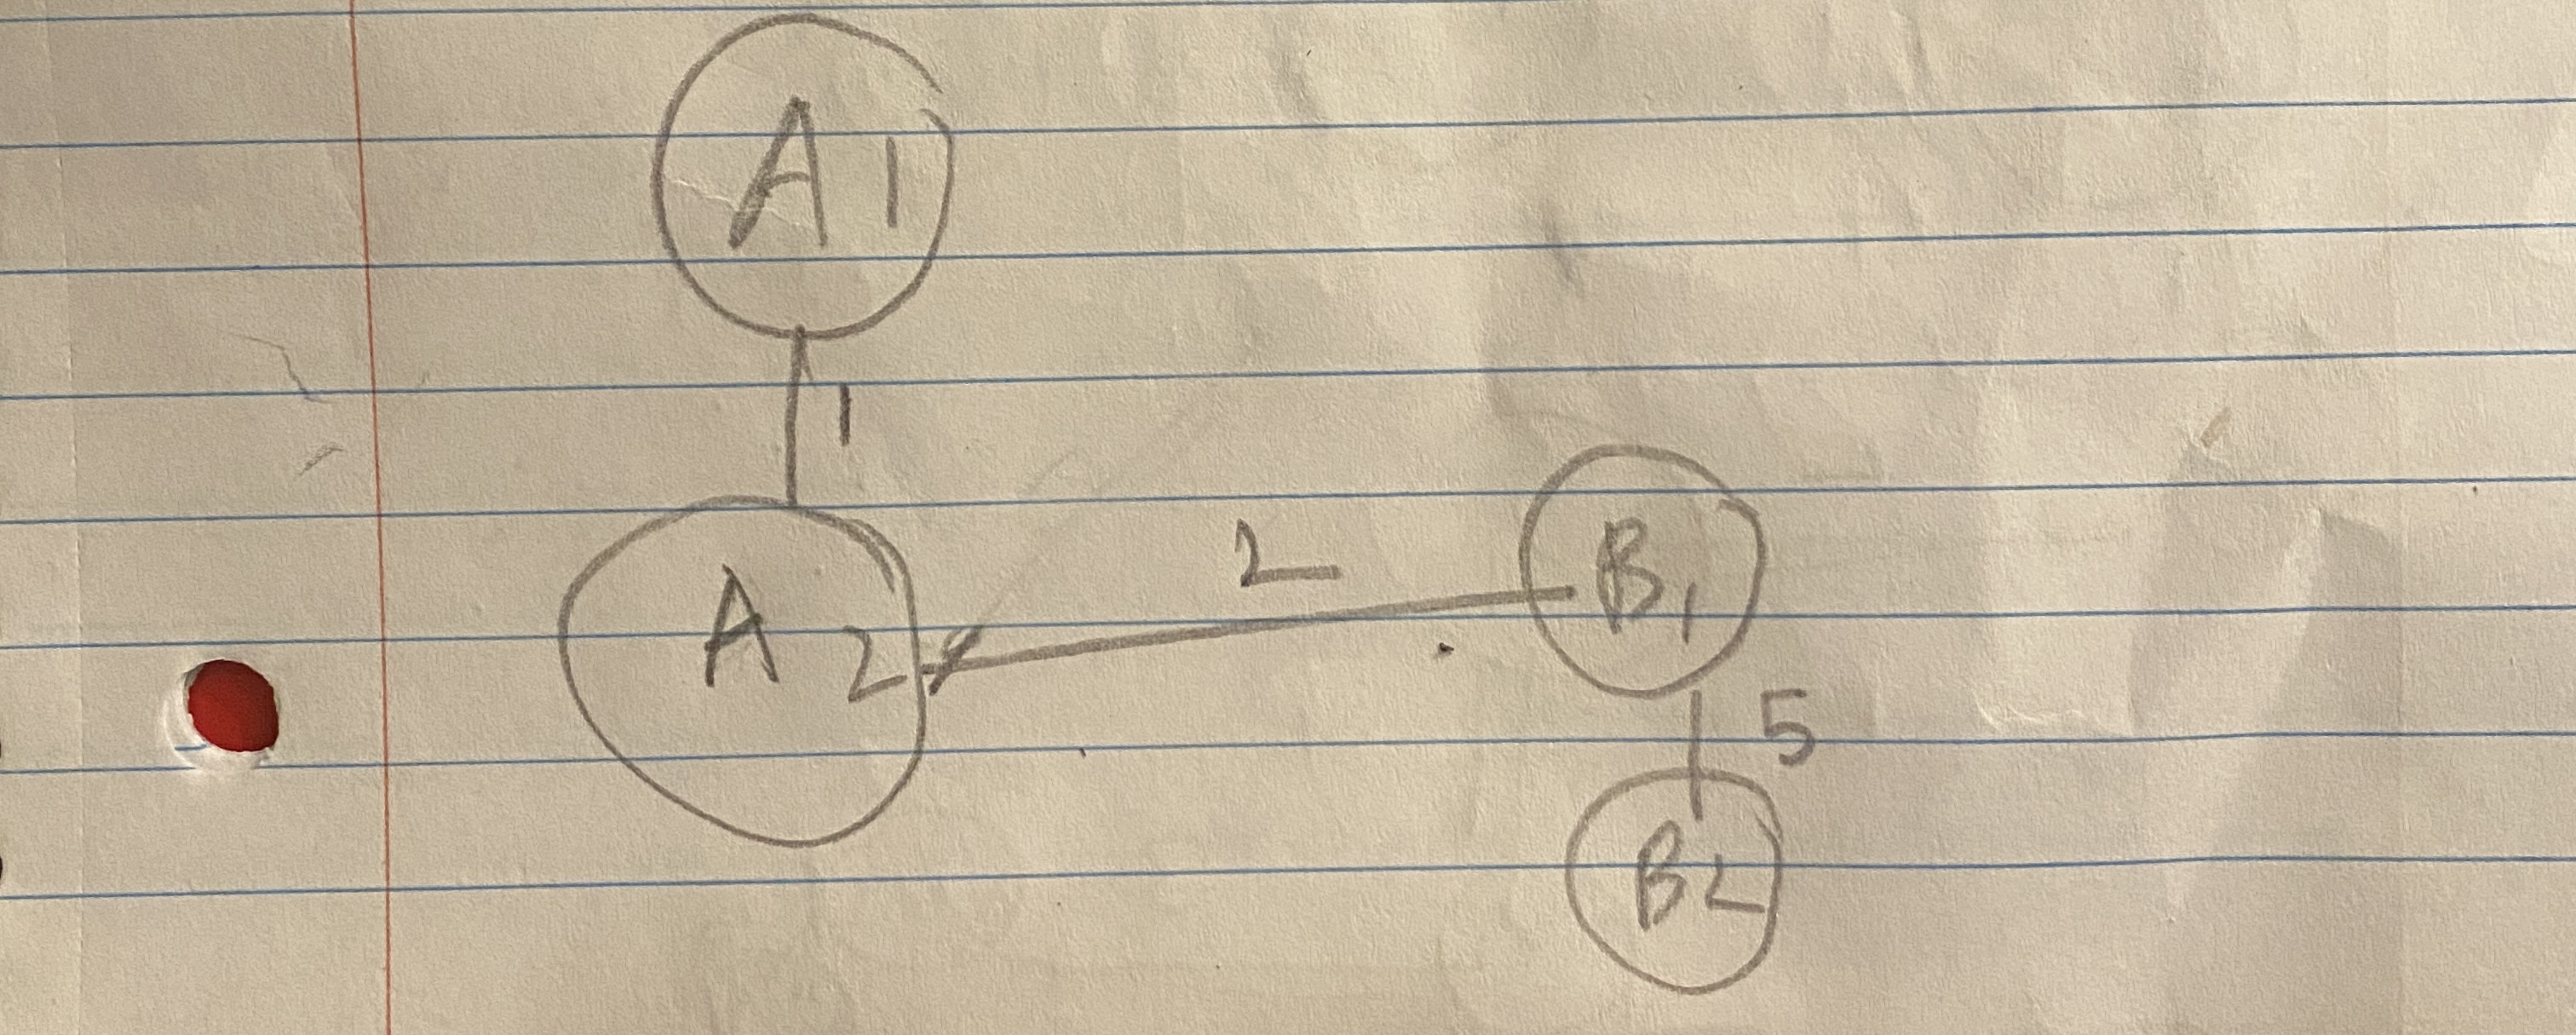 A1
1
A2
2
B1
5
B2